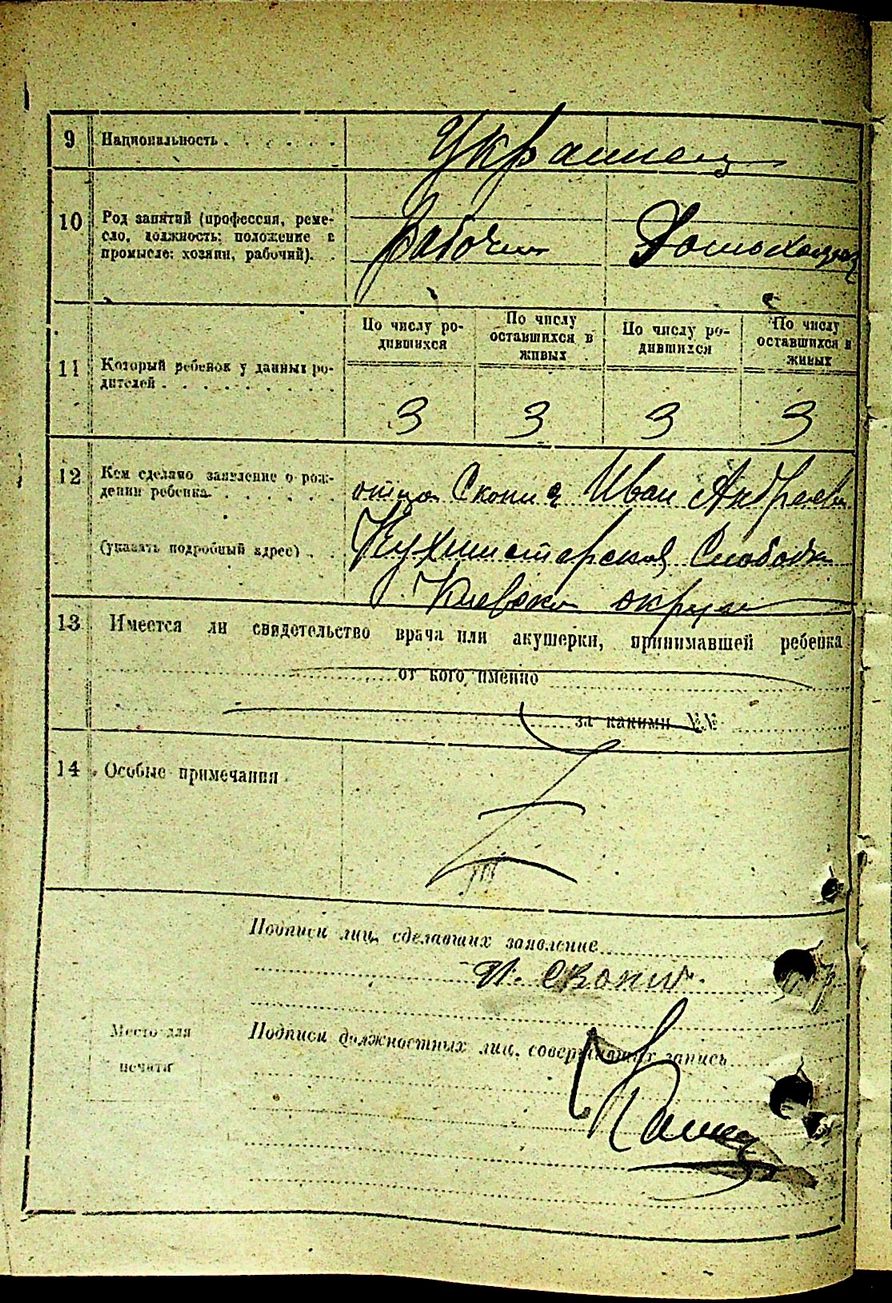 9 Национальность Украинец
10 Род занятий (профессия, реме-
сло, должность; положение в
промысле: хозяин, рабочий). Рабочий Домохозяйка
11 Который ребенок у данных ро-
дителей
По числу ро-
дившихся
По числу
оставшихся в
живых
По числу ро-
дившихся
По числу
оставшихся в
живых
3 3 3 3
12 Кем сделано заявление о рож-
дении ребенка. отца Иван Андреев
(указать подробный адрес) Кухмистерская Слободка
Киевско округи
13 Имеется ли свидетельство врача или акушерки, принимавшей ребенка
от кого именно
за какими №№
14 Особые примечания
Подписи лиц, сделавших заявление
И.
Место для
печати
Подписи должностных лиц, совершивших запись